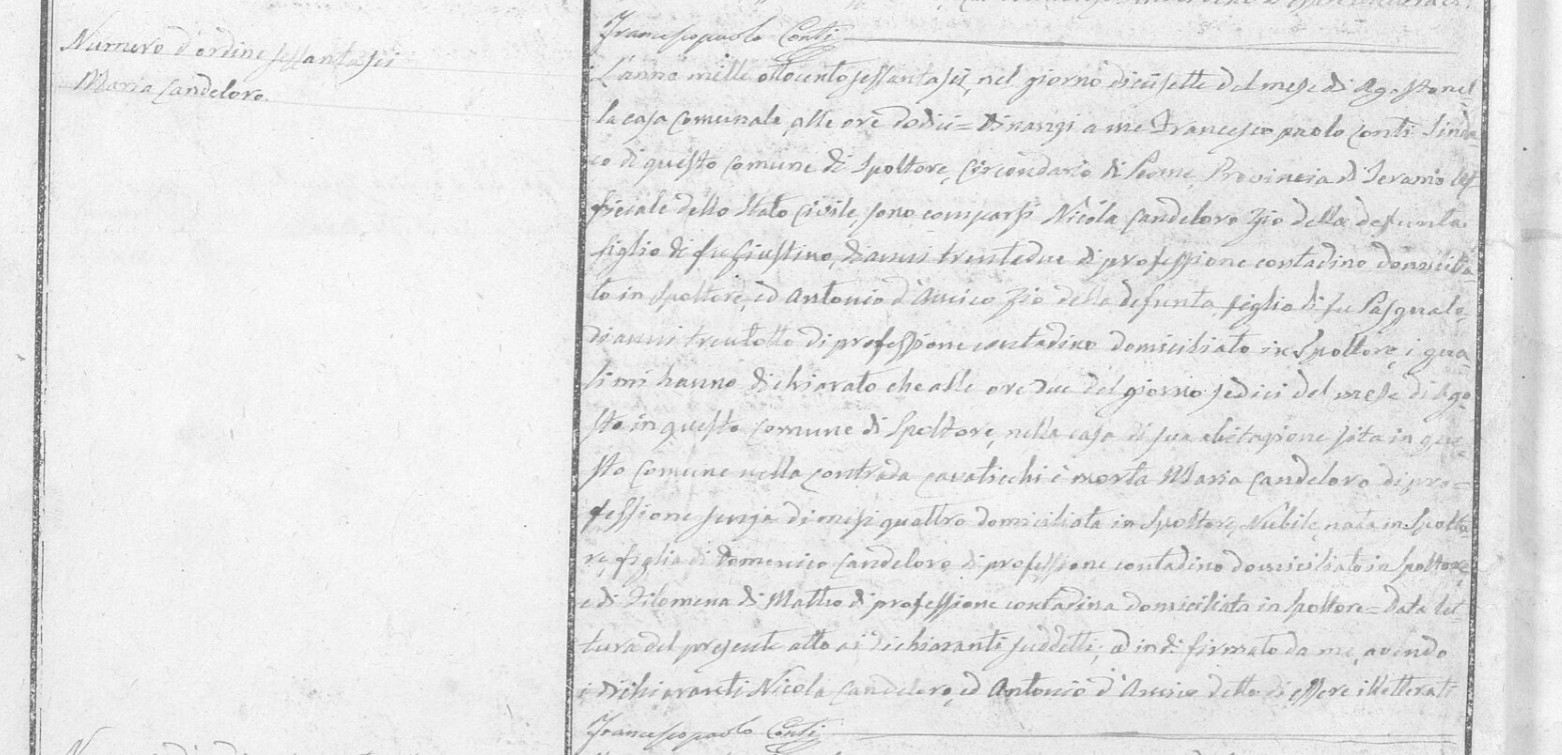 Francescopaolo Conti
Numero d'ordine sessantasei
Maria Candeloro.
L'anno mille ottocento sessantasei, nel giorno dicisette del mese di Agosto nel
la casa Comunale alle ore dodici = Dinanzi a me Francesco paolo Conti Sinda
co di questo Comune di Spoltore, Circondario di Penne, Provincia di Teramo Uf
ficiale dello Stato Civile, sono comparsi Nicola Candeloro Zio della defunta
figlio di fu Giustino, di anni trentadue di professione contadino domicilia
to in Spoltore, ed Antonio d'Amico Zio della defunta figlio di fu Pasquale
di anni trentotto di professione contadino domiciliato in Spoltore, i qua
li mi hanno dichiarato che alle ore due del giorno sedici del mese di Ago
sto in questo Comune di Spoltore, nella casa di sua abitazione sita in que
sto Comune nella contrada cavaticchi è morta Maria Candeloro di pro=
fessione senza di mesi quattro domiciliata in Spoltore, Nubile, nata in Spolto
re, figlia di Domenico Candeloro di professione contadino domiciliato in Spoltore
e di Filomena di Matteo di professione contadina domiciliata in Spoltore = Data let
tura del presente atto ai dichiaranti suddetti, e indi firmato da me, avendo
i Dichiaranti Nicola Candeloro, ed Antonio d'Amico detto di essere illetterati
Francescopaolo Conti